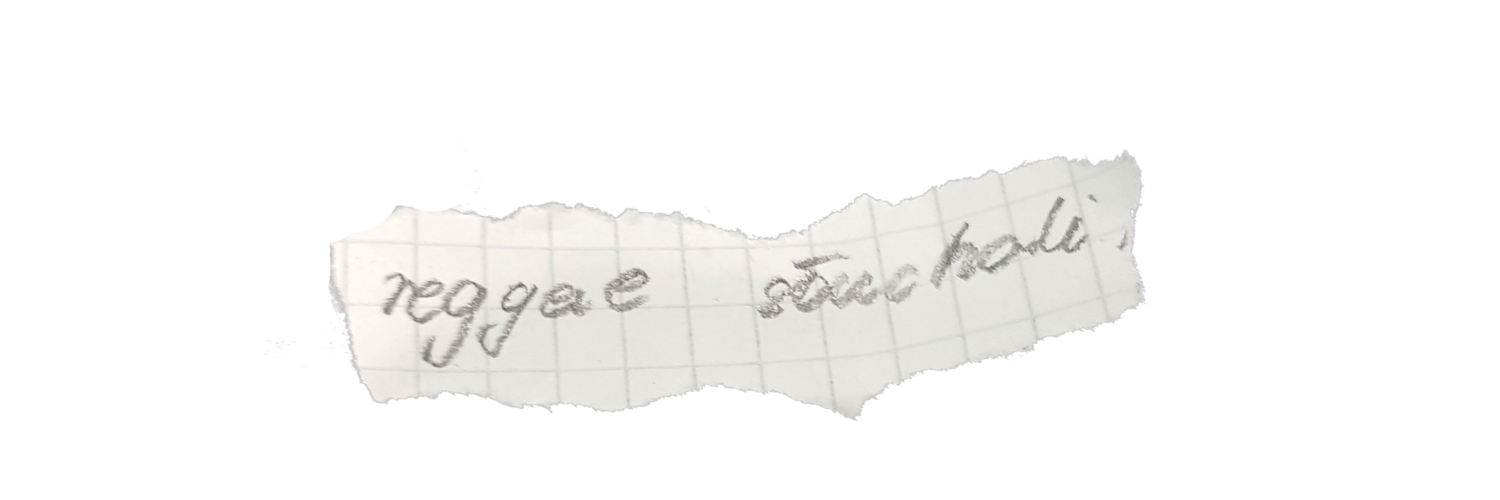 reggae słuchali,